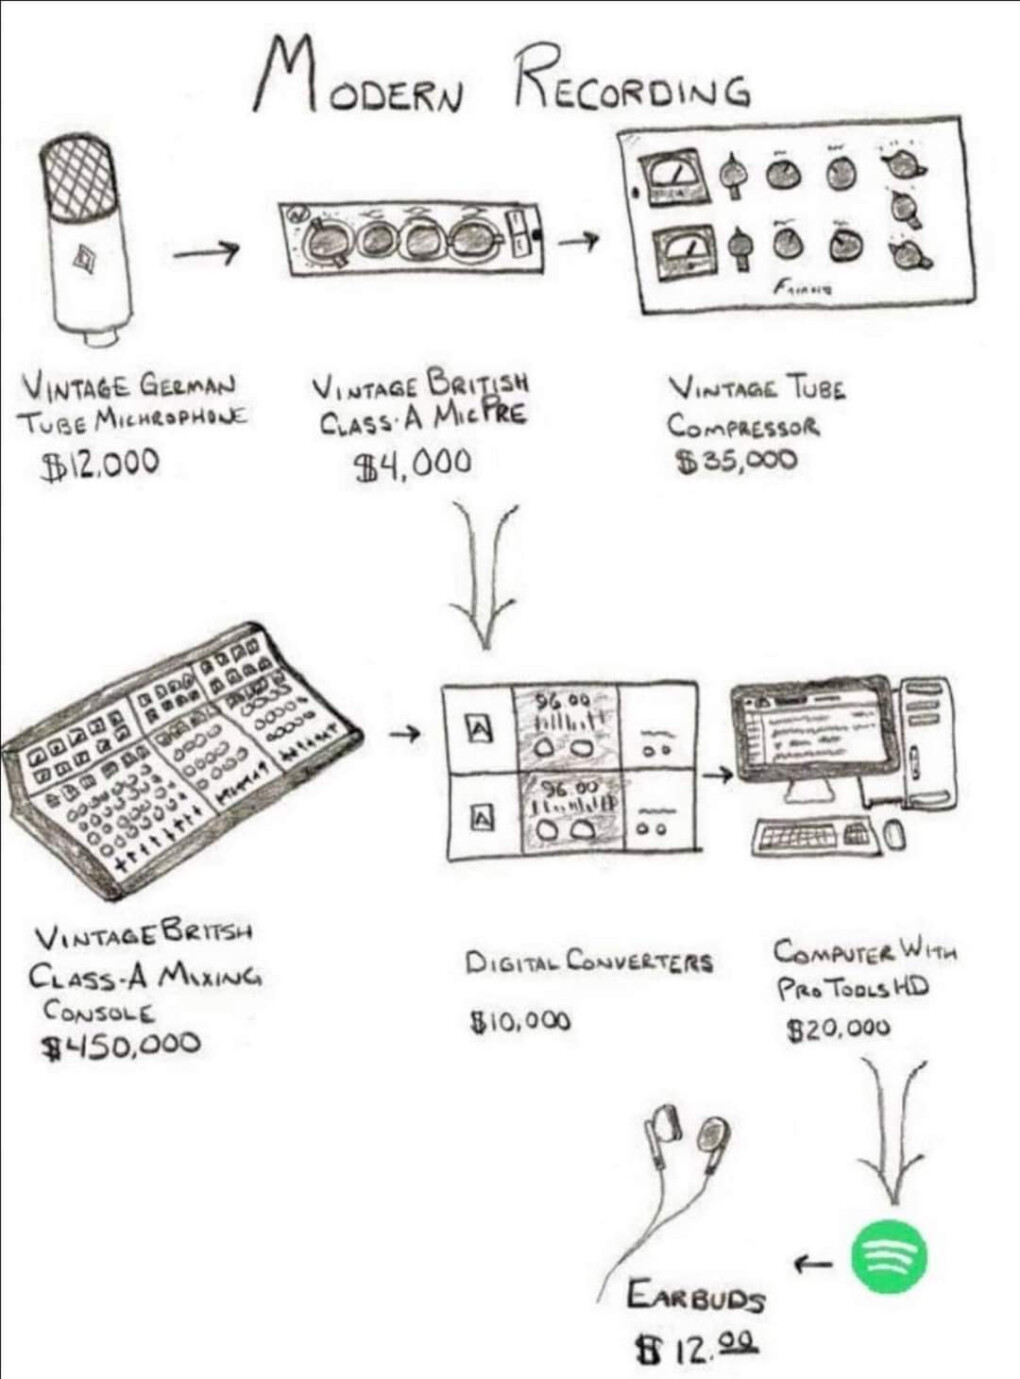 MODERN RECORDING
VINTAGE GERMAN
TUBE MICHROPHONE
$12,000
VINTAGE BRITISH
CLASS-A MICPRE
$4,000
VINTAGE TUBE
COMPRESSOR
$35,000
96.00
A
96.00
A
VINTAGE BRITSH
CLASS-A MIXING
CONSOLE
$450,000
DIGITAL CONVERTERS
$10,000
COMPUTER WITH
PRO TOOLS HD
$20,000
EARBUDS
$12.00